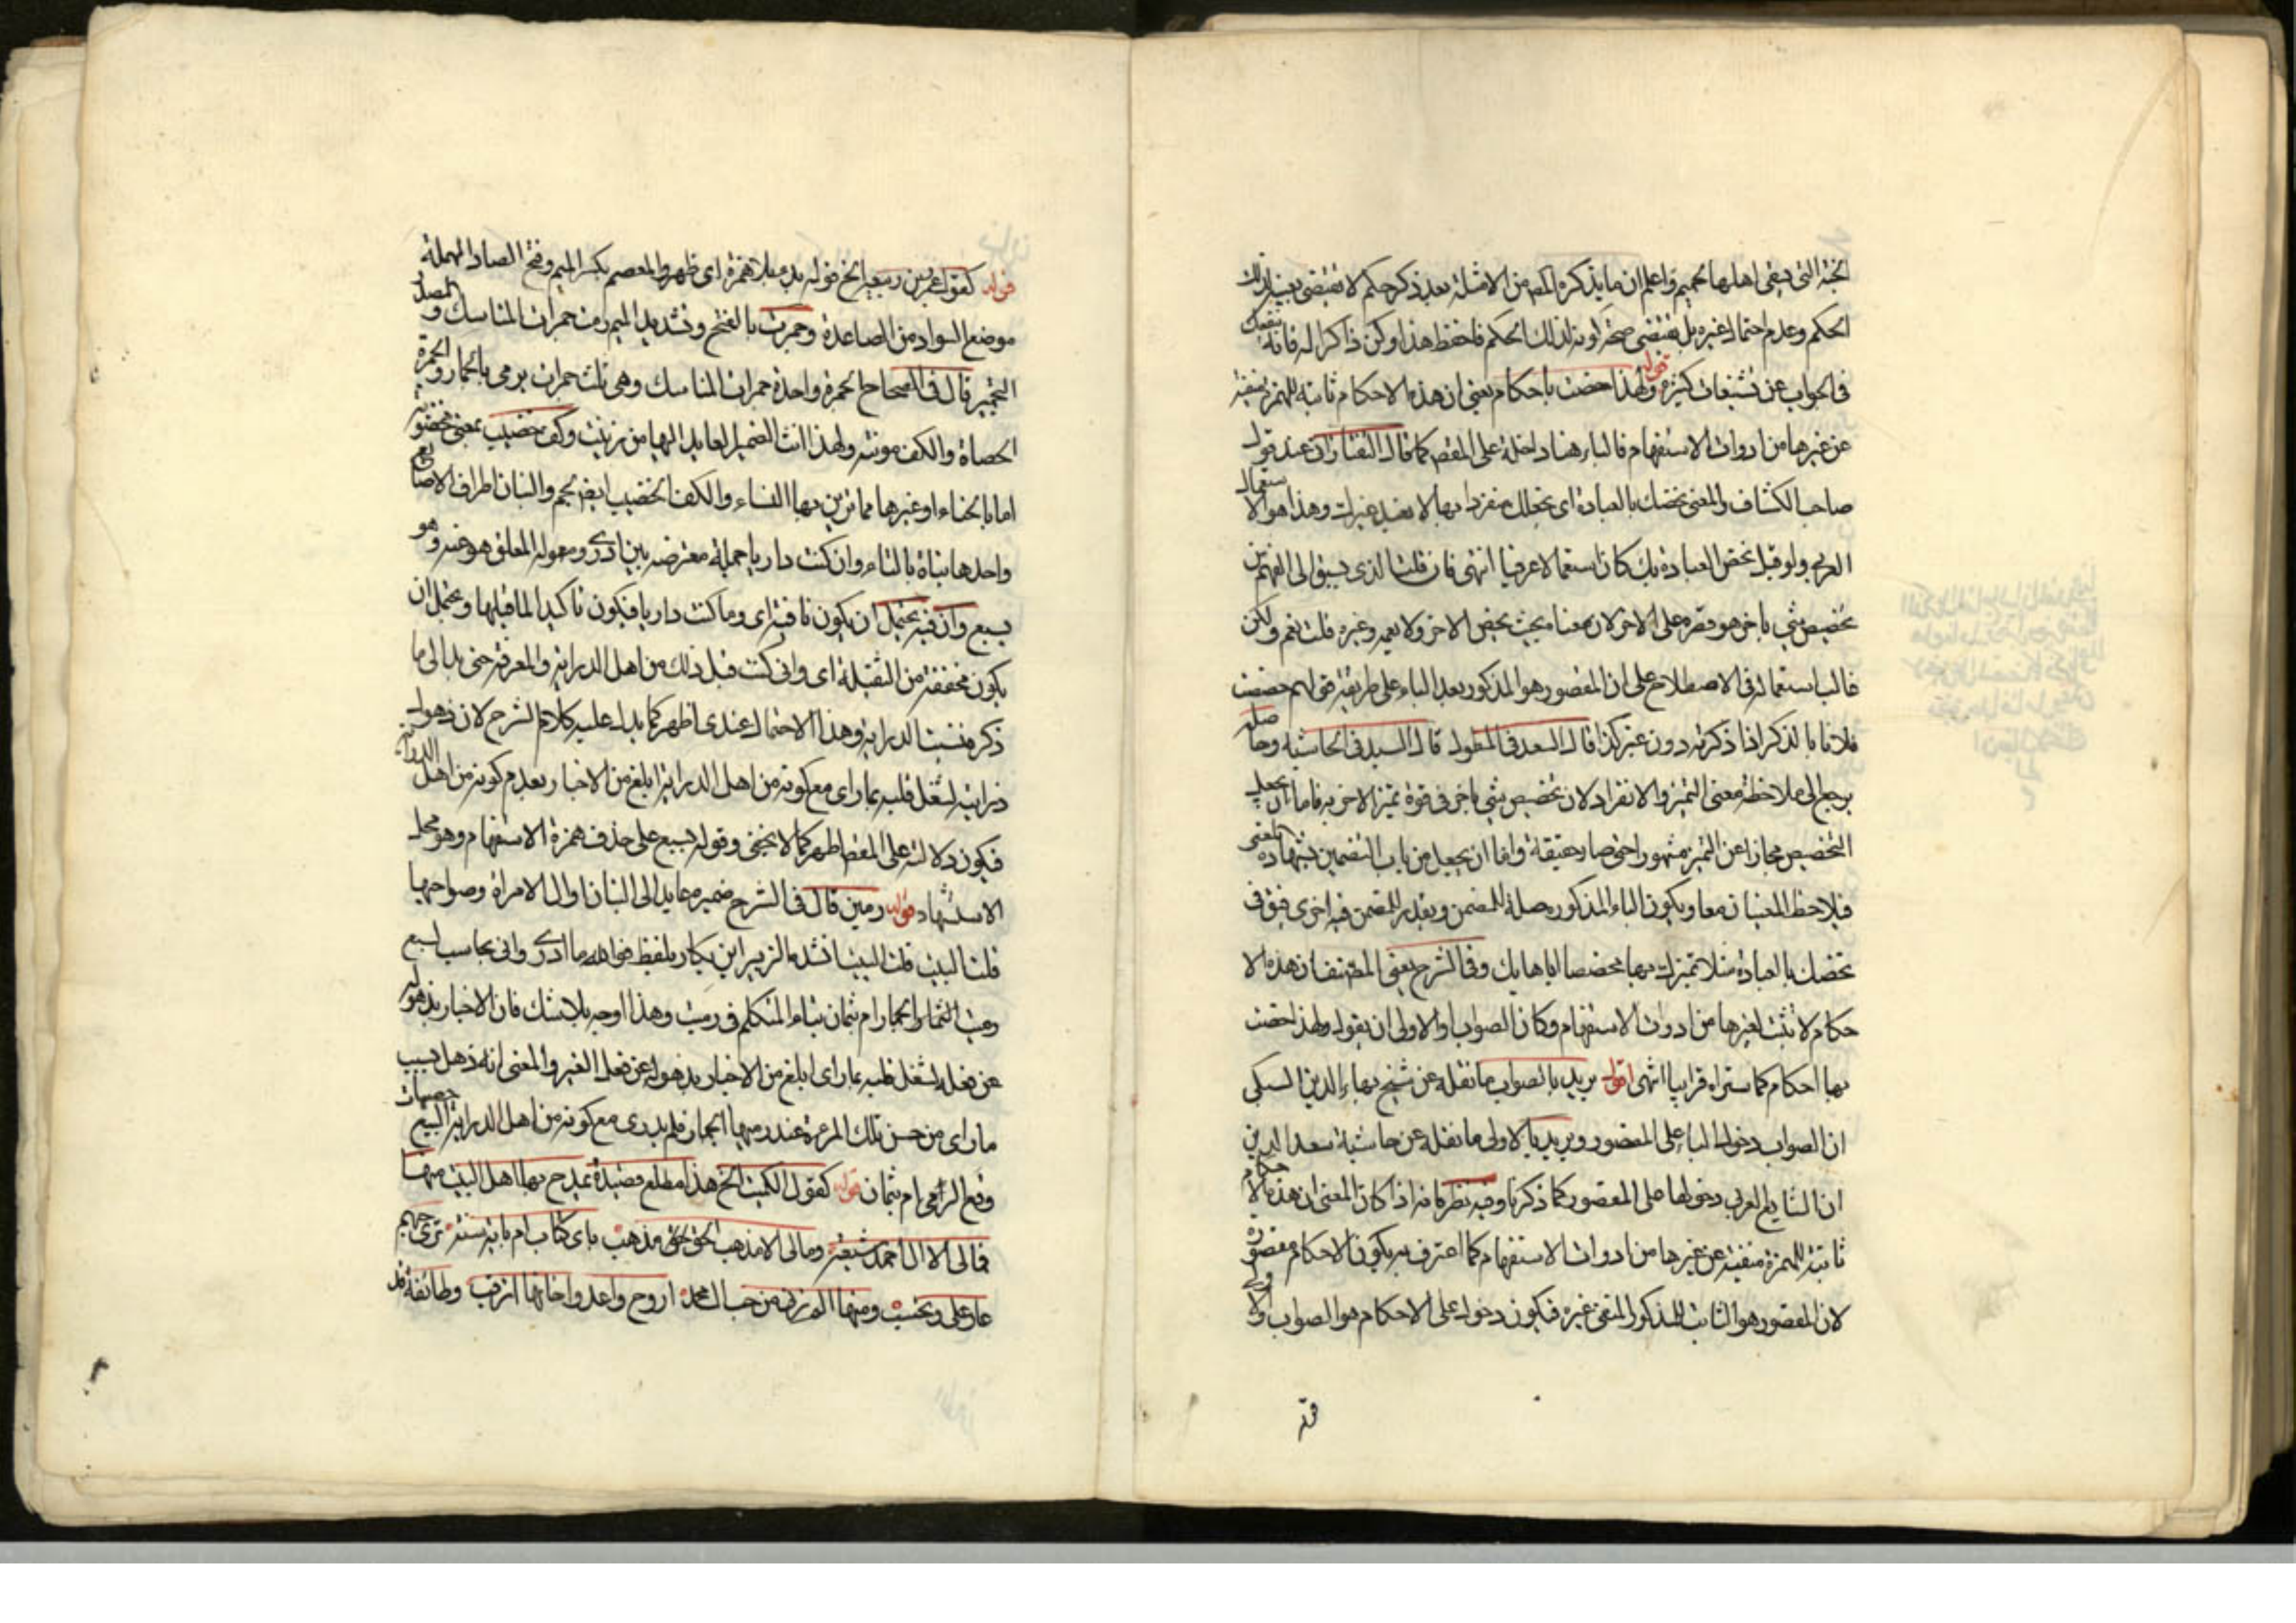 الجنة التي يبقى اهلها نحميم واعلم ان ما يذكره المص من الامثلة بعد ذكر حكم لا تقتضي تعينه لذلك
الحكم وعدم احتمال غيره بل يقتضي صحة كونه لذلك الحكم فاحفظ هذا وكن ذاكرا له فانه ينفعك
في الجواب عن تشنيعات كثيرة قوله ولهذا اختصت باحكام يعني ان هذه الاحكام ثابتة للهمزة منفية
عن غيرها من ادوات الاستفهام فالباء هنا داخلة على المقص كما قال التفتازاني عند قول
صاحب الكشاف والمعنى نخصك بالعبادة اي نجعلك منفردا بها لا نعبد غيرك وهذا هو الاستعمال
العربي ولو قيل نخص العبادة بك كان استعمالا عرفيا انتهى فان قلت الذي يسبق الى الفهم من
تخصيص شي باخر هو قصره على الاخر لان معناه بحيث يخص الاخر ولا يعمه وغيره قلت نعم ولكن
غالب استعماله في الاصطلاح على ان المقصور هو المذكور بعد الباء على طريقة قولهم خصصت
فلانا بالذكر اذا ذكرته دون غيره كذا قال السعد في المطول قال السيد في الحاشية وحاصله
يرجع الى ملاحظة معنى التميز والانفراد لان تخصيص شي باخر في قوة تميز الاخر به فاما ان يجعل
التخصيص مجازا عن التميز مشهورا حتى صار حقيقة واما ان يجعل من باب التضمين بشهادة المعنى
فيلاحظ المعنيان معا ويكون الباء المذكورة صلة للمضمن ويقدر للمضمن فيه اخرى فيق في
نخصك بالعبادة مثلا نميزك بها مخصصا اياها بك وفي الشرح يعني المصنف ان هذه الا
حكام لا تثبت لغيرها من ادوات الاستفهام وكان الصواب او الاولى ان يقول ولهذا اختصت
بها احكام كما ستراه قريبا انتهى اقول يريد بالصواب ما نقله عن شيخ بهاء الدين السبكي
ان الصواب دخول الباء على المقصور ويريد بالاولى ما نقله عن حاشية سعد الدين
ان الشايع العربي دخولها على المقصور كما ذكرنا وفيه نظر فانه اذا كان المعنى ان هذه الاحكام
ثابتة للهمزة منفية عن غيرها من ادوات الاستفهام كما اعترف به يكون الاحكام مقصورة
لان المقصور هو الثابت للمذكور المنفي غيره فيكون دخوله على الاحكام هو الصواب والاولى
قوله
قوله كقول عمر بن ربيعة الخ قوله بدا مبلا همزة اي ظهر والمعصم بكسر الميم وفتح الصاد المهملة
موضع السوار من الصاعدة وجمرت بالفتح وتشديد الميم رمت جمرات المناسك والمصدر
التجمير قال في الصحاح الجمرة واحدة جمرات المناسك وهي ثلث جمرات يرمى بالجمار والجمرة
الحصاة والكف مونثه ولهذا انث الضمير العايد اليها من زينت وكف خضيب بمعنى مخضوبة
اما بالحناء او غيرها مما تزين بها النساء والكف الخضيب ايضا نجم والبنان اطراف الاصابع
واحدها بنانة بالتاء وان كنت داريا جملة معترضة بين ادرى ومعوله المعلق هو عنه وهو
بسبع وان فيه يحتمل ان يكون نافية اي وما كنت داريا فيكون تاكيدا لما قبلها ويحتمل ان
يكون مخففة من الثقيلة اي واني كنت قبل ذلك من اهل الدراية والمعرفة حتى بدا لي ما
ذكر فنسيت الدراية وهذا الاحتمال عندى اظهر كما يدل عليه كلام الشرح لان ذهول
درايته لشغل قلبه بما راى مع كونه من اهل الدراية ابلغ من الاخبار بعدم كونه من اهل الدراية
فيكون دلالته على المقص اظهر كما لا يخفى وقوله بسبع على حذف همزة الاستفهام وهو محل
الاستشهاد قوله رمين قال في الشرح ضميره عايد الى البنان او الى الامراة وصواحبها
قلت البيت قلت البيت انشده الزبير ابن بكار بلفظ فوالله ما ادرى واني بحاسب بسبع
رميت الجمار ام بثمان بتاء المتكلم في رميت وهذا اوجه بلا شك فان الاخبار بذهوله
عن فعله لشغل قلبه بما راى ابلغ من الاخبار بذهوله عن فعل الغير والمعنى انه ذهل بسبب
ما راى من حسن تلك المرءة عند رميها الجمار فلم يدرى مع كونه من اهل الدراية ابسبع حصيات
وقع الرمي ام بثمان قوله كقول الكميت الخ هذا مطلع قصيدة يمدح بها اهل البيت منها
فمالي الا ال احمد شيعة ومالي الا مذهب الحق مذهب باى كتاب ام باية سنة ترى حبهم
عارا علي وتحسب ومنها الم ترني من حب ال محمد اروح واغدوا خائفا اترقب وطائفة قد